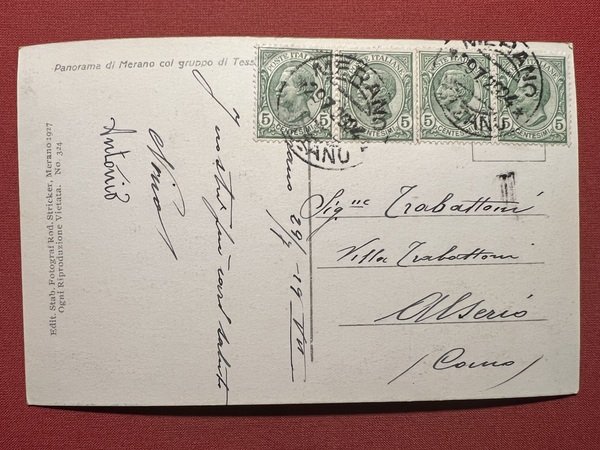 Panorama di Merano col gruppo di Tess
POSTE ITALIANE
5 CENTESIMI 5
POSTE ITALIANE
5 CENTESIMI 5
POSTE ITALIANE
5 CENTESIMI 5
POSTE ITALIANE
5 CENTESIMI 5
MERANO
MERANO
MERANO
MERANO
T
Merano 29/7 - 19 VII
I nostri più cari saluti
Nina
Antonio
Sig.ne Trabattoni
Villa Trabattoni
Alserio
(Como)
Edit. Stab. Fotograf Rod. Stricker, Merano 1927
Ogni Riproduzione Vietata. No. 324